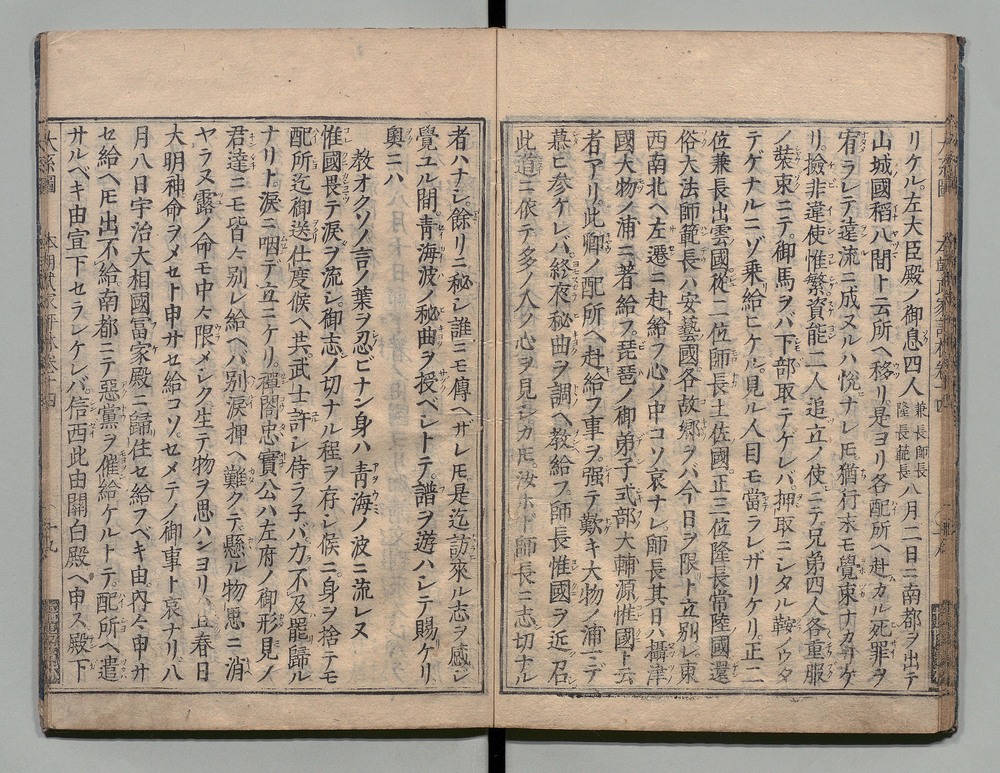 リケル。左大臣殿ノ御息四人兼長師長隆長範長八月二日ニ南都ヲ出テ
山城國稻八間ト云所ヘ移リ是ヨリ各配所ヘ赴カル死罪ヲ
宥ラレテ遠流ニ成ヌルハ悅ナレ𪜈猶行末モ覺束ナカリケ
リ。撿非違使惟繁資能二人追立ノ使ニテ兄弟四人各重服
ノ裝束ニテ。御馬ヲバ下部取テケレバ押取ニシタル鞍ノウタ
テゲナルニゾ乘給ヒケル。見ル人目モ當ラレザリケリ。正二
位兼長出雲國從二位師長土佐國。正三位隆長常陸國還
俗大法師範長ハ安藝國各故鄕ヲバ今日ヲ限ト立別レ東
西南北ヘ左遷ニ赴給フ心ノ中コソ哀ナレ師長其日ハ攝津
國大物ノ浦ニ著給フ。琵琶ノ御弟子式部大輔源惟國ト云
者アリ。此卿ノ配所ヘ赴給フ事ヲ强テ歎キ大物ノ浦ニテ
慕ヒ參ケレハ終夜秘曲ヲ調ヘ敎給フ。師長惟國ヲ近ク召
此道ニ依テ多ノ人ノ心ヲ見シカ𪜈。汝ホド師長ニ志切ナル
者ハナシ。餘リニ秘シ誰ニモ傳ヘザレ𪜈是迄訪來ル志ヲ感シ
覺ユル間。靑海波ノ秘曲ヲ授ベシトテ譜ヲ遊ハシテ賜ケリ
奧ニハ
敎オクソノ言ノ葉ヲ忍ビナン身ハ靑海ノ波ニ流レヌ
惟國畏テ淚ヲ流シ。御志ノ切ナル程ヲ存シ候ニ。身ヲ捨テモ
配所迄御送仕度候ヘ共。武士許シ侍ラ子バ力不及罷歸ル
ナリト。淚ニ咽デ立ニケリ。禪閤忠實公ハ左府ノ御形見ノ
君達ニモ皆々別レ給ヘバ別淚押ヘ難クテ懸ル物思ニ消
ヤラヌ露ノ命モ中々限メシク生テ物ヲ思ハンヨリハ且春日
大明神命ヲメセト申サセ給コソ。セメテノ御事ト哀ナリ。八
月八日宇治大相國富家殿ニ歸住セ給フベキ由。內々申サ
セ給ヘ𪜈出不給南都ニテ惡黨ヲ催給ケルトテ。配所ヘ遣
サルベキ由宣下セラレケレバ。信西此由關白殿ヘ申ス。殿下